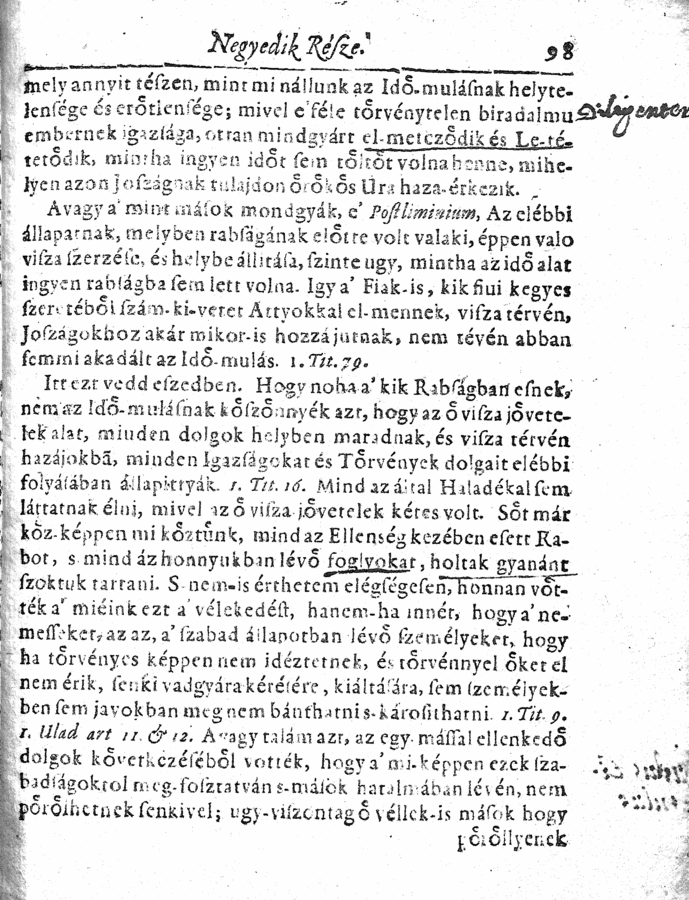 Negyedik Réſze. 98
mely annyit téſzen, mint mi nállunk az Idő-muláſnak helyte-
lenſége és erőtlenſége; mivel e'féle tőrvénytelen biradalmu
embernek igazſága, ottan mindgyárt el-metcződik és Le-té-
tetődik, mintha ingyen időt ſem tőltőt volna benne, mihe-
lyen azon Joſzágnak tulajdon őrőkős Ura haza-érkezik.
Diligenter
Avagy a' mint máſok mondgyák, e' Poſtliminium, Az elébbi
állapatnak, melyben rabſágának előtte volt valaki, éppen valo
viſza ſzerzéſe, és helybe állitáſa, ſzinte ugy, mintha az idő alat
ingyen rabſágba ſem lett volna. Igy a' Fiak-is, kik fiui kegyes
ſzeretéből ſzám-ki-vetet Attyokkal el-mennek, viſza térvén,
Joſzágokhoz akár mikor-is hozzá jutnak, nem tévén abban
ſemmi akadált az Idő-mulás. 1. Tit. 79.
Itt ezt vedd eſzedben. Hogy noha a' kik Rabſágban eſnek,
nem az Idő-muláſnak kőſzőnnyék azt, hogy az ő viſza jővete-
lek alat, minden dolgok helyben maradnak, és viſza térvén
hazájokbā, minden Igazſágokat és Tőrvények dolgait elébbi
folyáſában állapittyák. 1. Tit. 16. Mind az által Haladékal ſem
láttatnak élni, mivel az ő viſza jővetelek kétes volt. Sőt már
kőz-képpen mi kőztűnk, mind az Ellenség kezében eſett Ra-
bot, s mind áz honnyukban lévő foglyokat, holtak gyanánt
ſzoktuk tartani. S nem-is érthetem elégségeſen, honnan vőt-
ték a' miéink ezt a' vélekedéſt, hanem-ha innét, hogy a' ne-
meſſeket, az az, a' ſzabad állapotban lévő ſzemélyeket, hogy
ha tőrvényes képpen nem idéztetnek, és tőrvénnyel őket el
nem érik, ſenki vadgyára kéréſére, kiáltáſára, ſem ſzemélyek-
ben ſem javokban meg nem bánthatni s-károſithatni. 1. Tit. 9.
1. Ulad art 11. & 12. Avagy talám azt, az egy máſſal ellenkedő
dolgok kővetkezéſéből vőtték, hogy a' mi-képpen ezek ſza-
badſágoktol meg-foſztatván s-máſok hatalmában lévén, nem
pőrőlhetnek ſenkivel; ugy-viſzontagő véllek-is máſok hogy
pőrőllyenek